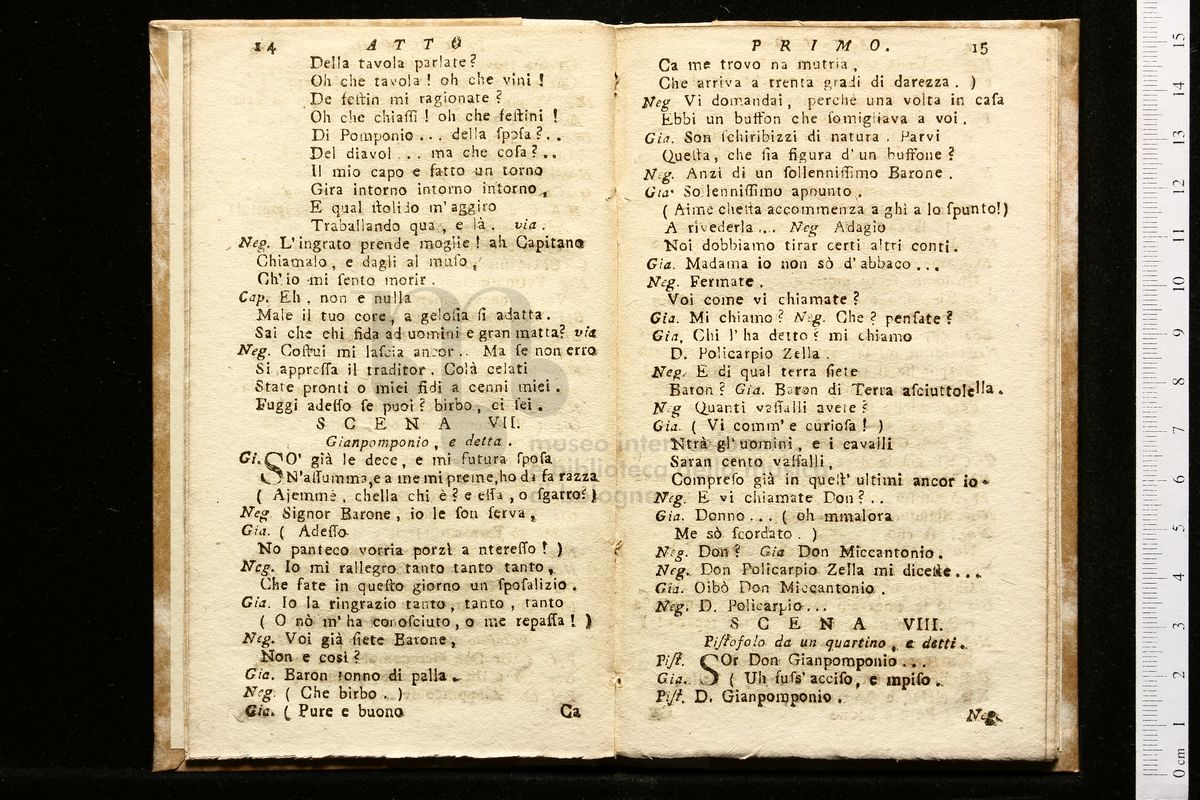 14 ATTO
Della tavola parlate?
Oh che tavola! oh che vini!
De feſtin mi ragionate?
Oh che chiaſſi! oh che feſtini!
Di Pomponio... della ſpoſa?..
Del diavol... ma che coſa?..
Il mio capo e fatto un torno
Gira intorno intorno intorno,
E qual ſtolido m'aggiro
Traballando qua, e là. via.
Neg. L'ingrato prende moglie! ah Capitano
Chiamalo, e dagli al muſo,
Ch'io mi ſento morir.
Cap. Eh, non e nulla
Male il tuo core, a geloſia ſi adatta.
Sai che chi fida ad uomini e gran matta? via
Neg. Coſtui mi laſcia ancor.. Ma ſe non erro
Si appreſſa il traditor. Colà celati
State pronti o miei fidi a cenni miei.
Fuggi adeſſo ſe puoi? birbo, ci ſei.
SCENA VII.
Gianpomponio, e detta.
Gi. SO' già le dece, e mi futura ſpoſa
N'aſſumma, e a me mi preme, ho da fa razza
(Ajemmè, chella chi è? e eſſa, o ſgarro?)
Neg Signor Barone, io le ſon ſerva,
Gia. (Adeſſo
No panteco vorria porzì a ntereſſo!)
Neg. Io mi rallegro tanto tanto tanto,
Che fate in queſto giorno un ſpoſalizio.
Gia. Io la ringrazio tanto, tanto, tanto
(O nò m'ha conoſciuto, o me repaſſa!)
Neg. Voi già ſiete Barone,
Non e così?
Gia. Baron tonno di palla.
Neg. (Che birbo.)
Gia. (Pure e buono
Ca
PRIMO. 15
Ca me trovo na mutria,
Che arriva a trenta gradi di darezza.)
Neg Vi domandai, perchè una volta in caſa
Ebbi un buffon che ſomigliava a voi.
Gia. Son ſchiribizzi di natura. Parvi
Queſta, che ſia figura d'un buffone?
Neg. Anzi di un ſollenniſſimo Barone.
Gia. Sollenniſſimo appunto.
(Aimè cheſta accommenza a ghì a lo ſpunto!)
A rivederla... Neg Adagio
Noi dobbiamo tirar certi altri conti.
Gia. Madama io non sò d'abbaco...
Neg. Fermate.
Voi come vi chiamate?
Gia. Mi chiamo? Neg. Che? penſate?
Gia. Chi l'ha detto? mi chiamo
D. Policarpio Zella.
Neg. E di qual terra ſiete
Baron? Gia. Baron di Terra aſciuttolella.
Neg Quanti vaſſalli avete?
Gia. (Vi comm'e curioſa!)
Ntrà gl'uomini, e i cavalli
Saran cento vaſſalli,
Compreſo già in queſt'ultimi ancor io.
Neg. E vi chiamate Don?..
Gia. Donno... (oh mmalora
Me sò ſcordato.)
Neg. Don? Gia Don Miccantonio.
Neg. Don Policarpio Zella mi diceſte...
Gia. Oibò Don Miccantonio.
Neg. D. Policarpio...
SCENA VIII.
Piſtofolo da un quartino, e detti.
Piſt. SOr Don Gianpomponio...
Gia. (Uh fuſs' acciſo, e mpiſo.
Piſt. D. Gianpomponio.
Neg.